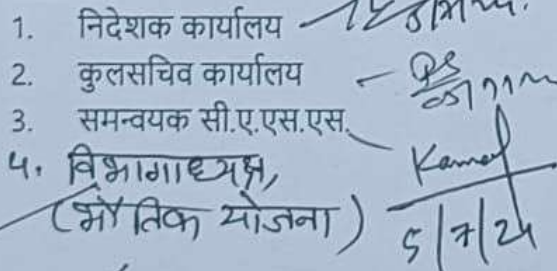 1. निदेशक कार्यालय
2. कुलसचिव कार्यालय
3. समन्वयक सी.ए.एस.एस.
4. विभागाध्यक्ष,
(भौतिक योजना)
Kamal
5/7/24